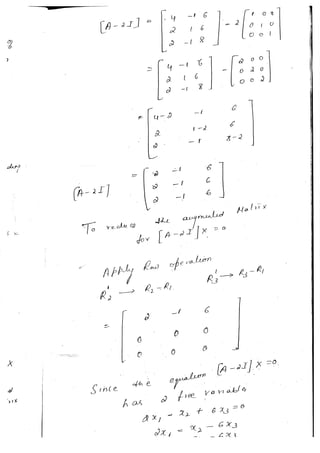 [A-2I] = [4 -1 6 - 2 [1 0 0
2 1 6 0 1 0
2 -1 8] 0 0 1]
= [4 -1 6 - [2 0 0
2 1 6 0 2 0
2 -1 8] 0 0 2]
= [4-2 -1 6
2 1-2 6
2 -1 8-2]
[A-2I] = [2 -1 6
2 -1 6
2 -1 6]
To reduce the augmented Matrix
for [A-2I]X=0
Apply Row operation
R2' → R2-R1 R3' → R3-R1
= [2 -1 6
0 0 0
0 0 0]
Since the equation [A-2I]X=0
has 2 free variable
2x1 - x2 + 6x3 = 0
2x1 = x2 - 6x3